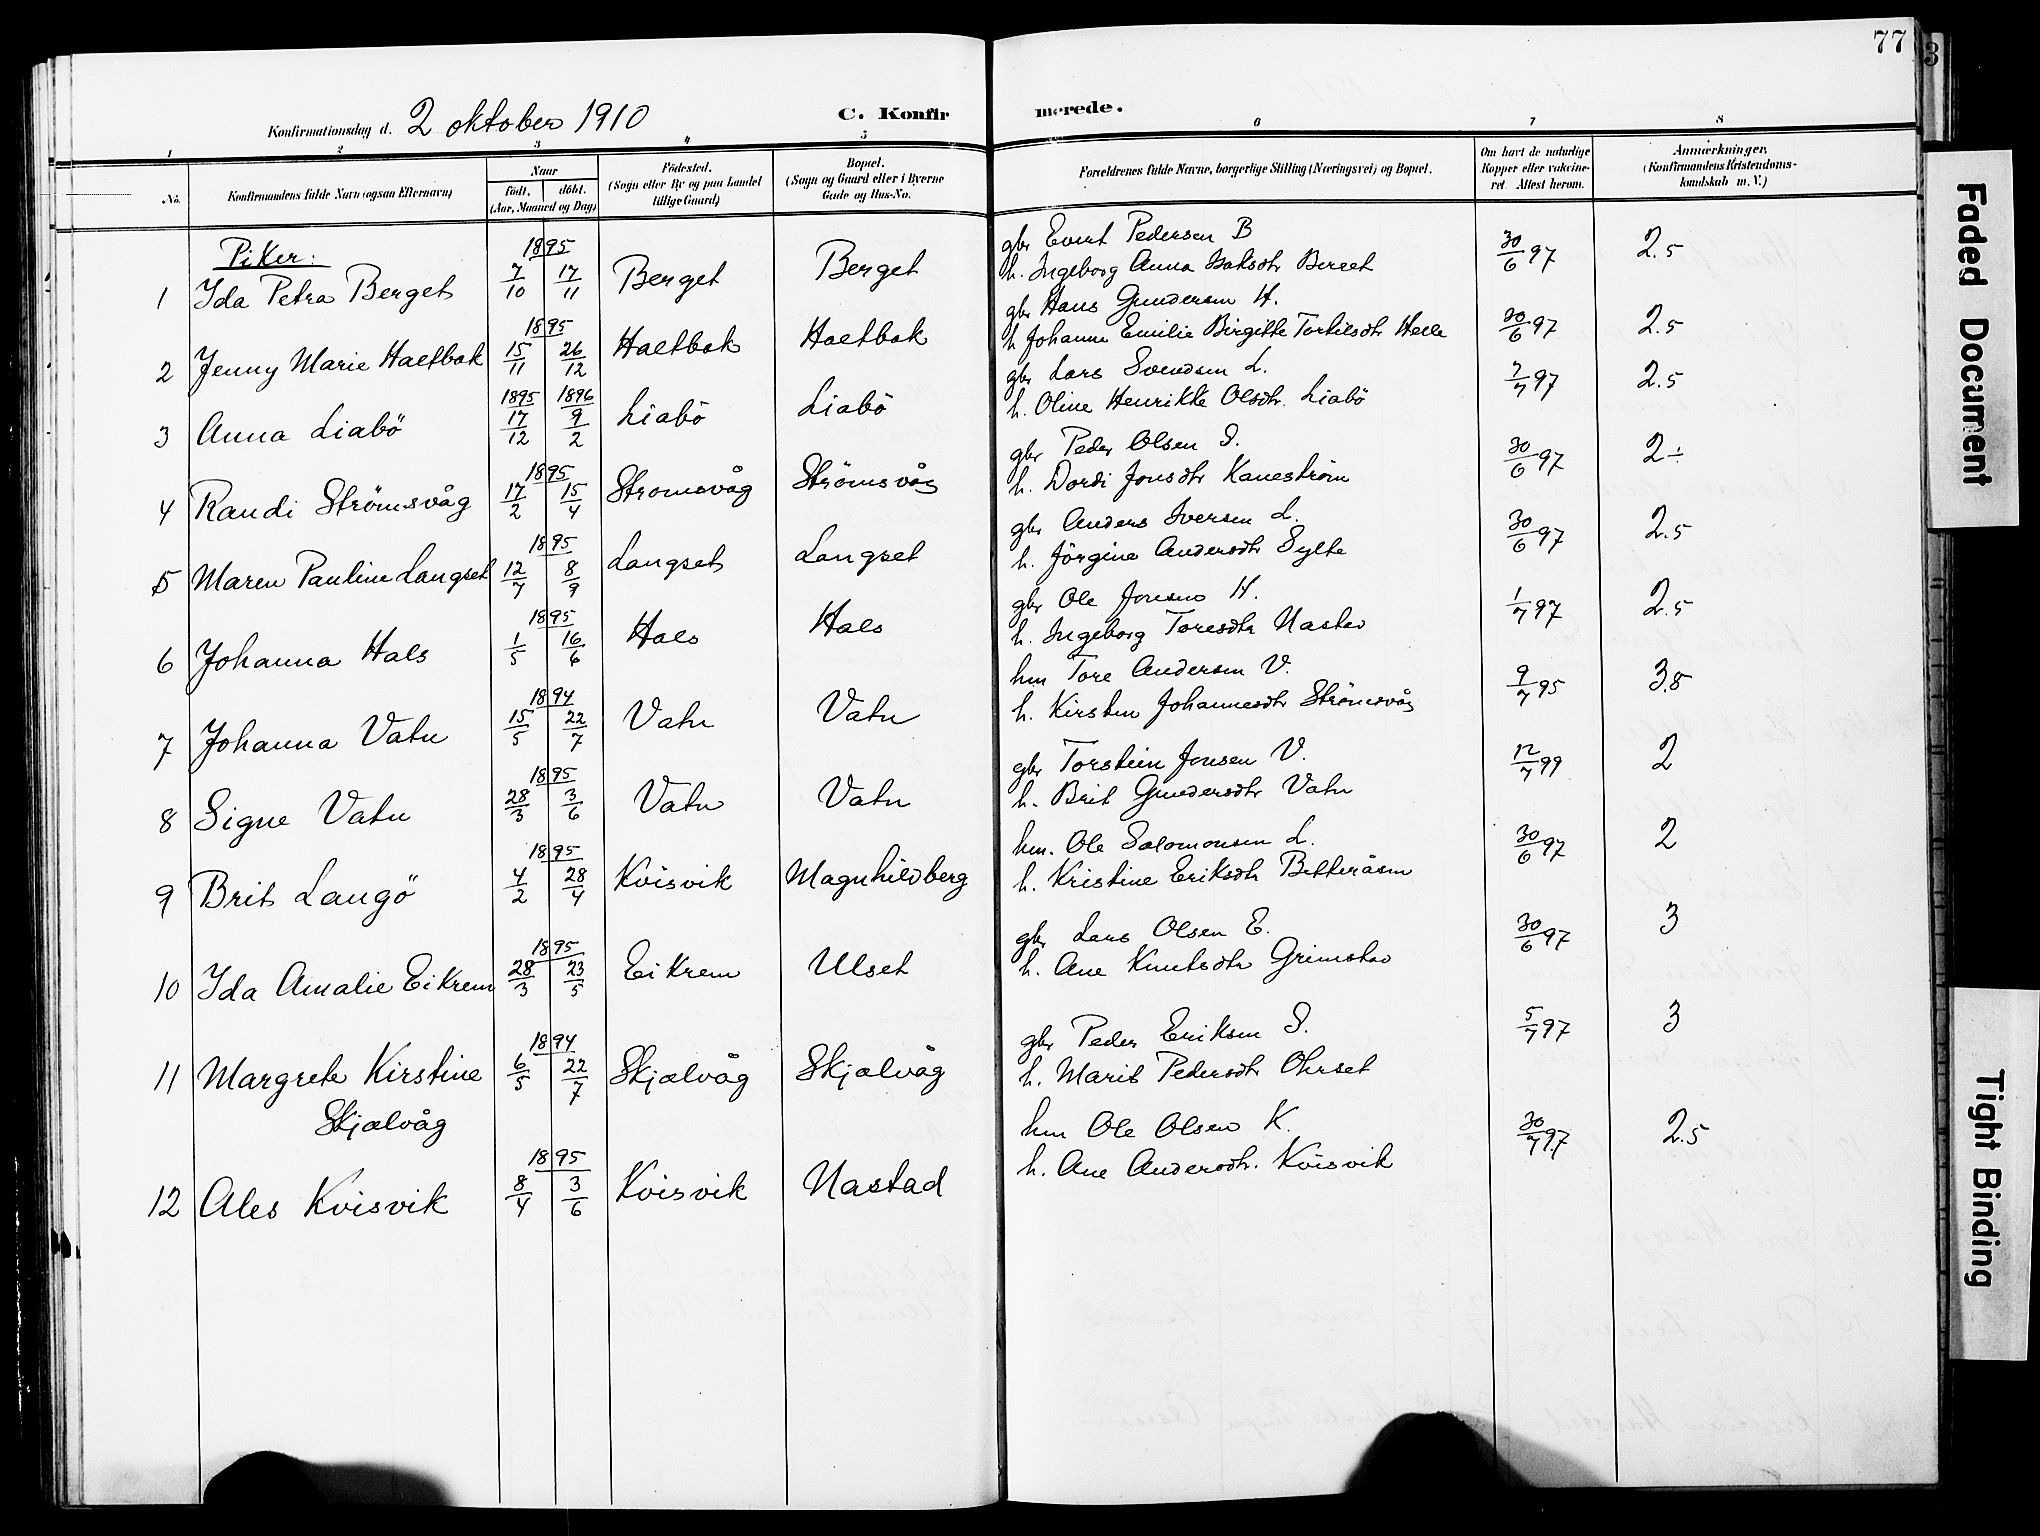 77
3
Konfirmationsdag d. 2 oktober 1910 C. Konfirmerede.
1 2 3 4 5 6 7 8
No.
Konfirmandens fulde Navn (ogsaa Efternavn)
Naar
født, døbt.
(Aar, Maaned og Dag)
Fødested.
(Sogn eller By og paa Landet
tillige Gaard)
Bopæl.
(Sogn og Gaard eller i Byerne
Gade og Hus-No.
Forældrenes fulde Navne, borgerlige Stilling (Næringsvei) og Bopæl.
Om havt de naturlige
Kopper eller vakcine-
ret. Attest herom.
Anmærkninger,
(Konfirmandens Kristendoms-
kundskab m. V.)
Piker:
1 Ida Petra Berget 1895 7/10 17/11 Berget Berget gbr Evert Pedersen B 30/6 97 2.5
h. Ingeborg Anna Isaksdtr Berget
2 Jenny Marie Haltbak 1895 15/11 26/12 Haltbak Haltbak gbr Hans Gundersen H. 30/6 97 2.5
h Johanne Emilie Birgitte Torkilsdtr Helle
3 Anna Liabö 1895 17/12 1896 9/2 Liabö Liabö gbr Lars Svendsen L. 7/7 97 2.5
h. Oline Henrikke Olsdtr. Liabö
4 Randi Strömsvåg 1895 17/2 15/4 Stromsvåg Strömsvåg gbr Peder Olsen S. 30/6 97 2 ÷
h. Dordi Jonsdtr Kaneström
5 Maren Pauline Langset 1895 12/7 8/9 Langset Langset gbr Anders Iversen L. 30/6 97 2.5
h. Jörgine Andersdtr Sylte
6 Johanna Hals 1895 1/5 16/6 Hals Hals gbr Ole Jonsen H. 1/7 97 2.5
h. Ingeborg Toresdtr Nastad
7 Johanna Vatn 1894 15/5 22/7 Vatn Vatn hm Tore Andersen V. 9/7 95 3.5
h. Kirsten Johannesdtr Strömsvåg
8 Signe Vatn 1895 28/3 3/6 Vatn Vatn gbr Torstein Jonsen V. 12/7 99 2
h. Brit Gundersdtr Vatn
9 Brit Langö 1895 4/2 28/4 Kvisvik Magnhildberg hm. Ole Salomonsen L. 30/6 97 2
h. Kristine Eriksdtr Betteråsen
10 Ida Amalie Eikrem 1895 28/3 23/5 Eikrem Ulset gbr Lars Olsen E. 30/6 97 3
h. Ane Knutsdtr Grimstad
11 Margrete Kirstine 1894 6/5 22/7 Skjælvåg Skjælvåg gbr Peder Eriksen S. 5/7 97 3
Skjælvåg h. Marit Pedersdtr Ohrset
12 Ales Kvisvik 1895 8/4 3/6 Kvisvik Nastad hm Ole Olsen K. 30/7 97 2.5
h. Ane Andersdtr. Kvisvik
Faded Document
Tight Binding